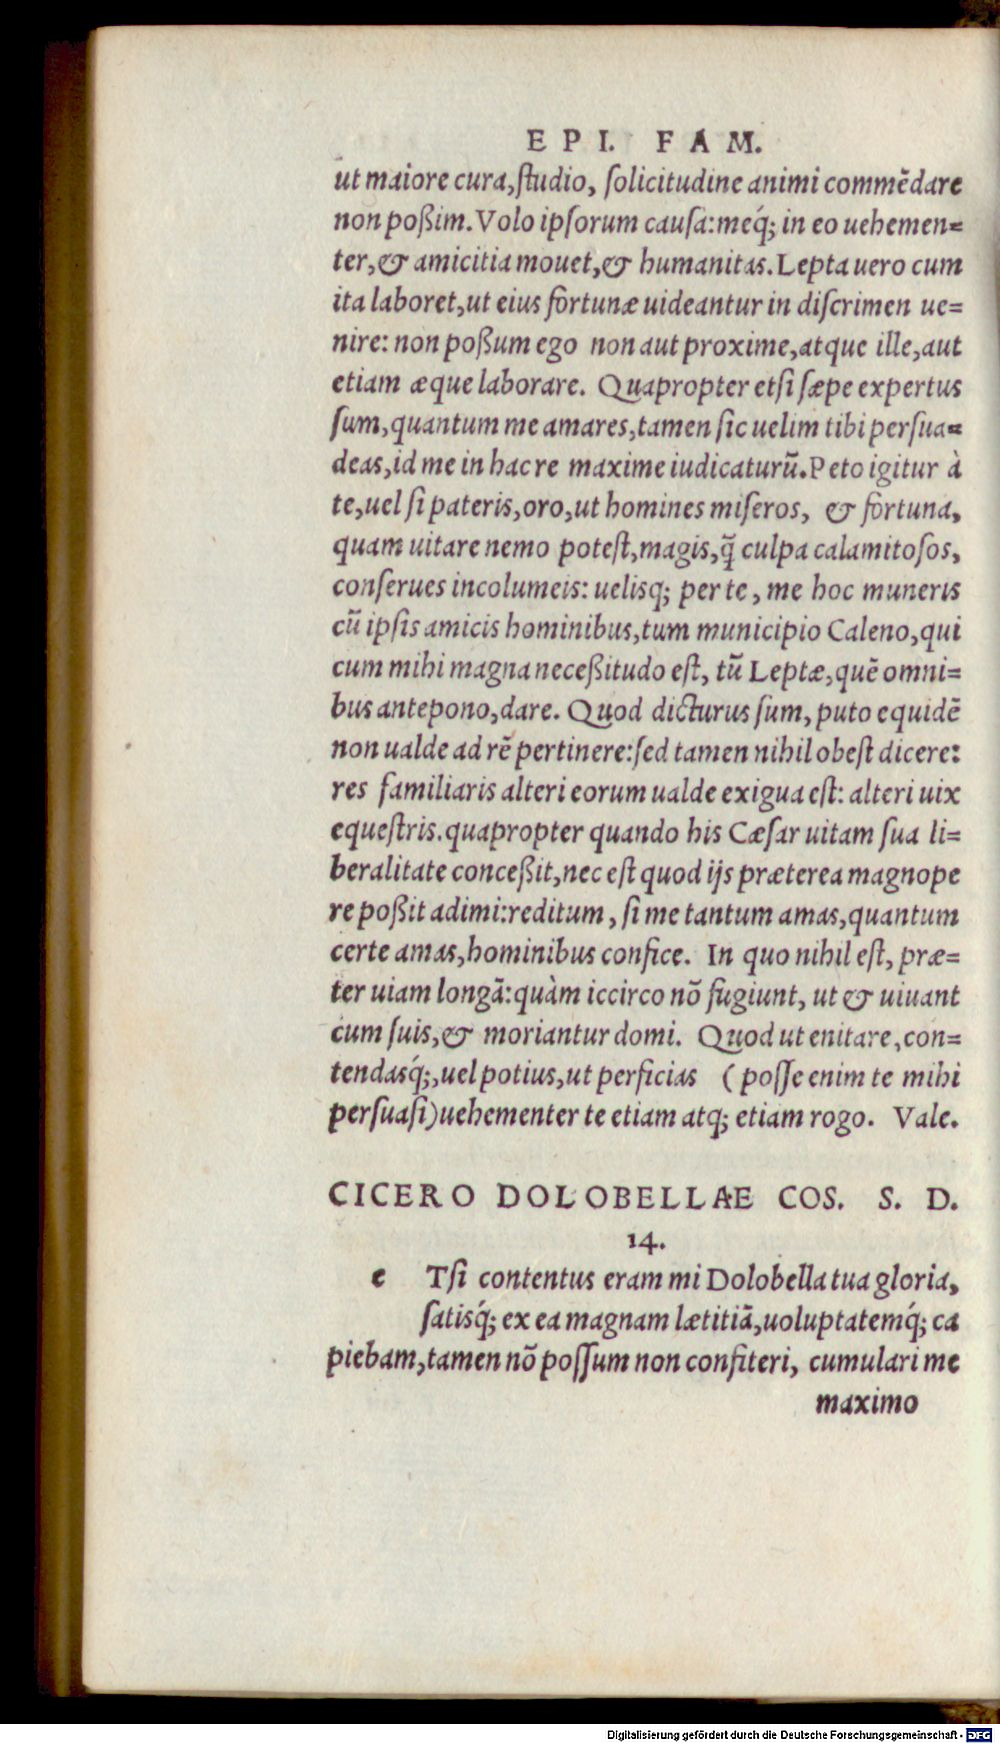 EPI. FAM.
ut maiore cura, ſtudio, ſolicitudine animi commēdare
non poßim. Volo ipſorum cauſa: meq́; in eo uehemen=
ter, & amicitia mouet, & humanitas. Lepta uero cum
ita laboret, ut eius fortunæ uideantur in diſcrimen ue=
nire: non poßum ego non aut proxime, atque ille, aut
etiam æque laborare. Quapropter etſi ſæpe expertus
ſum, quantum me amares, tamen ſic uelim tibi perſua=
deas, id me in hac re maxime iudicaturū. Peto igitur à
te, uel ſi pateris, oro, ut homines miſeros, & fortuna,
quam uitare nemo poteſt, magis, q̃ culpa calamitoſos,
conſerues incolumeis: uelisq; per te, me hoc muneris
cū ipſis amicis hominibus, tum municipio Caleno, qui
cum mihi magna neceßitudo eſt, tū Leptæ, quē omni=
bus antepono, dare. Quod dicturus ſum, puto equidē
non ualde ad rē pertinere: ſed tamen nihil obeſt dicere:
res familiaris alteri eorum ualde exigua eſt: alteri uix
equeſtris. quapropter quando his Cæſar uitam ſua li=
beralitate conceßit, nec eſt quod ijs præterea magnope
re poßit adimi: reditum, ſi me tantum amas, quantum
certe amas, hominibus confice. In quo nihil eſt, præ=
ter uiam longā: quàm iccirco nō fugiunt, ut & uiuant
cum ſuis, & moriantur domi. Quod ut enitare, con=
tendasq́;, uel potius, ut perficias (poſſe enim te mihi
perſuaſi) uehementer te etiam atq; etiam rogo. Vale.
CICERO DOLOBELLAE COS. S. D.
14.
e Tſi contentus eram mi Dolobella tua gloria,
ſatisq́; ex ea magnam lætitiā, uoluptatemq́; ca
piebam, tamen nō poſſum non confiteri, cumulari me
maximo
Digitalisierung gefördert durch die Deutsche Forschungsgemeinschaft - DFG